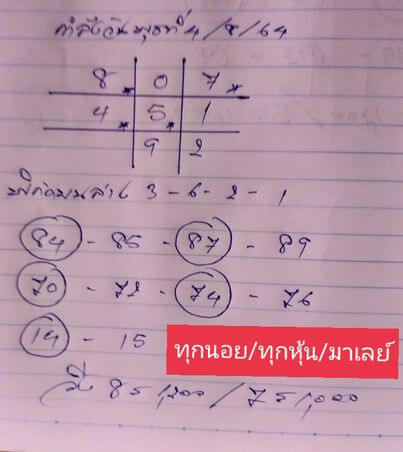 กำลังวันพุธที่ 4/8/64
8 0 7
4 5 1
9 2
3 - 6 - 2 - 1
84 - 85 - 87 - 89
70 - 72 - 74 - 76
14 - 15
ทุกนอย/ทุกหุ้น/มาเลย์
วิ่ง 85